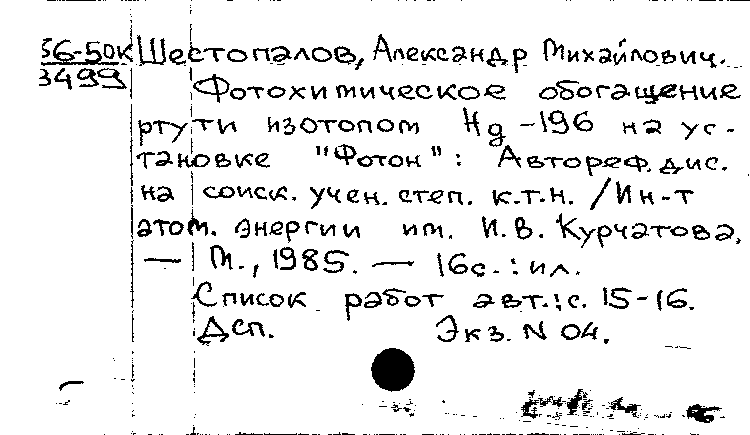 56-50к Шестопалов, Александр Михайлович.
3499 Фотохимическое обогащение
ртути изотопом Hg-196 на ус-
тановке "Фотон": Автореф. дис.
на соиск. учен. степ. к.т.н. /Ин-т
атом. энергии им. И.В. Курчатова.
— М., 1985. — 16с.: ил.
Список работ авт.: с. 15-16.
Дсп. Экз. N 04.